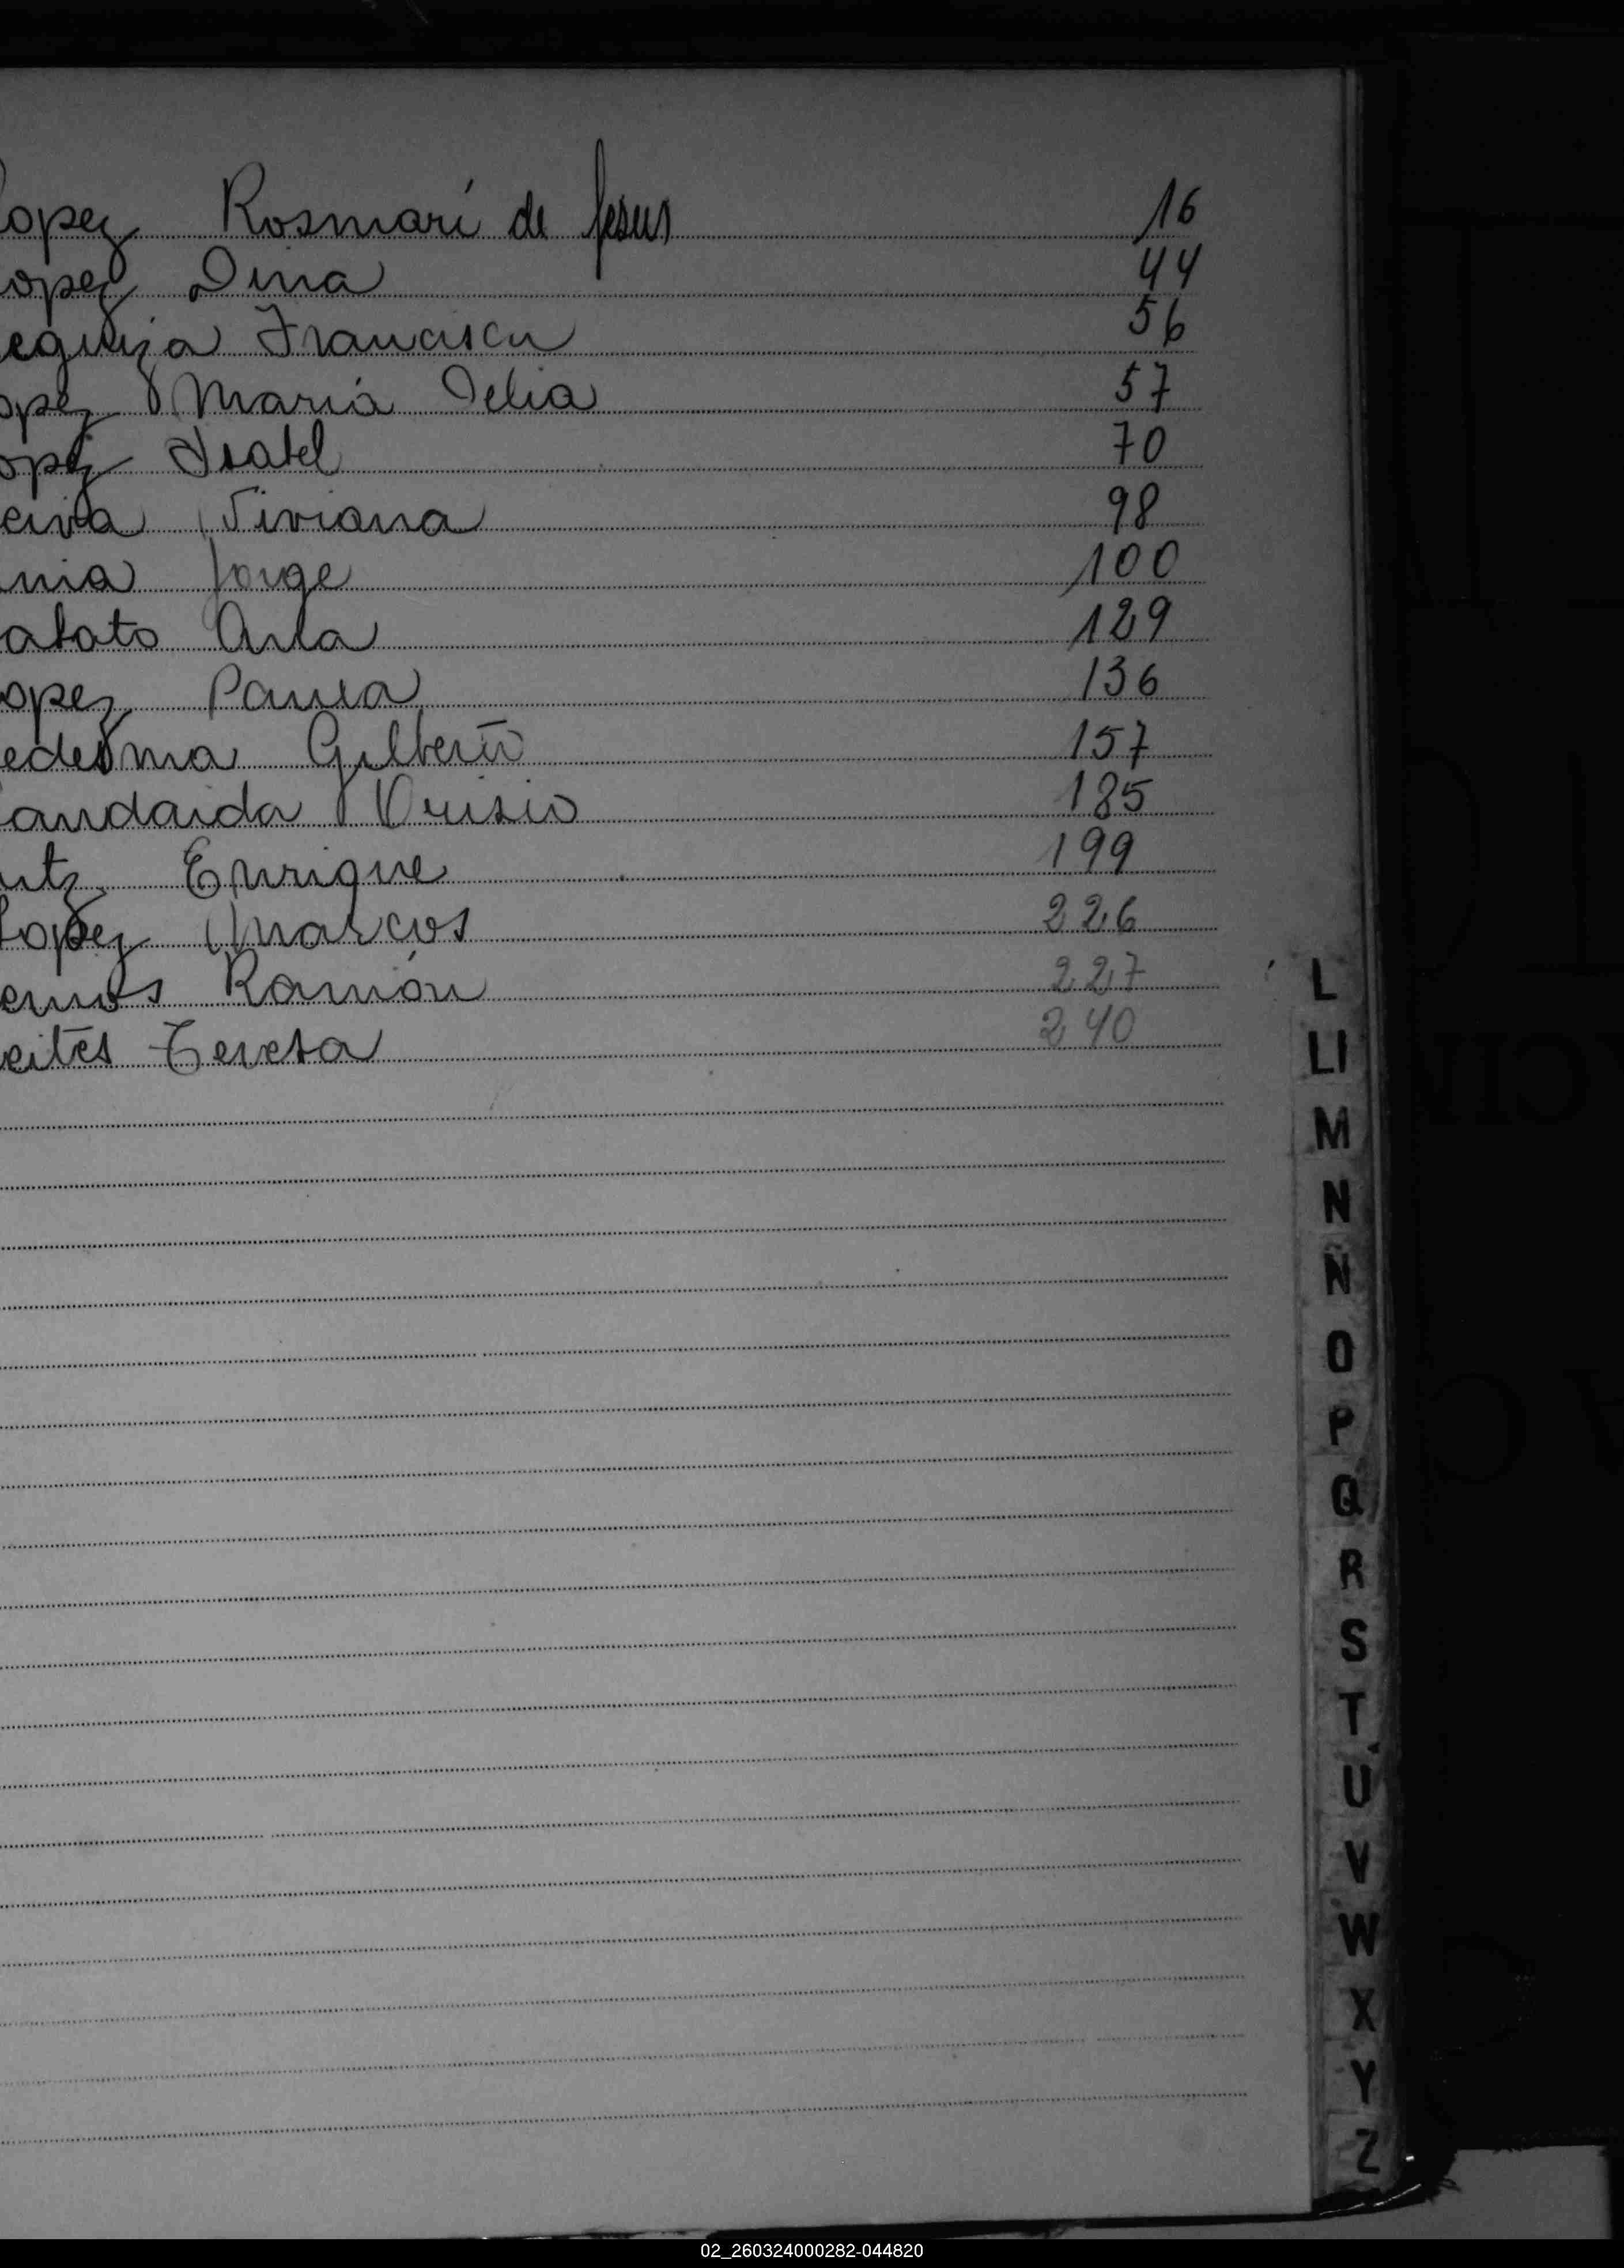 opez Rosmarí de Jesus 16
opez Dina 44
eguiza Francisca 56
opez Maria Delia 57
opez Isabel 70
eiva Viviana 98
una Jorge 100
abato Ana 129
opez Paula 136
edesma Gilberto 157
andaida 185
utz Enrique 199
Lopez Marcos 226
emos Ramón 227
eites Teresa 240
L
LI
M
N
N
O
P
Q
R
S
T
U
V
W
X
Y
Z
02_260324000282-044820